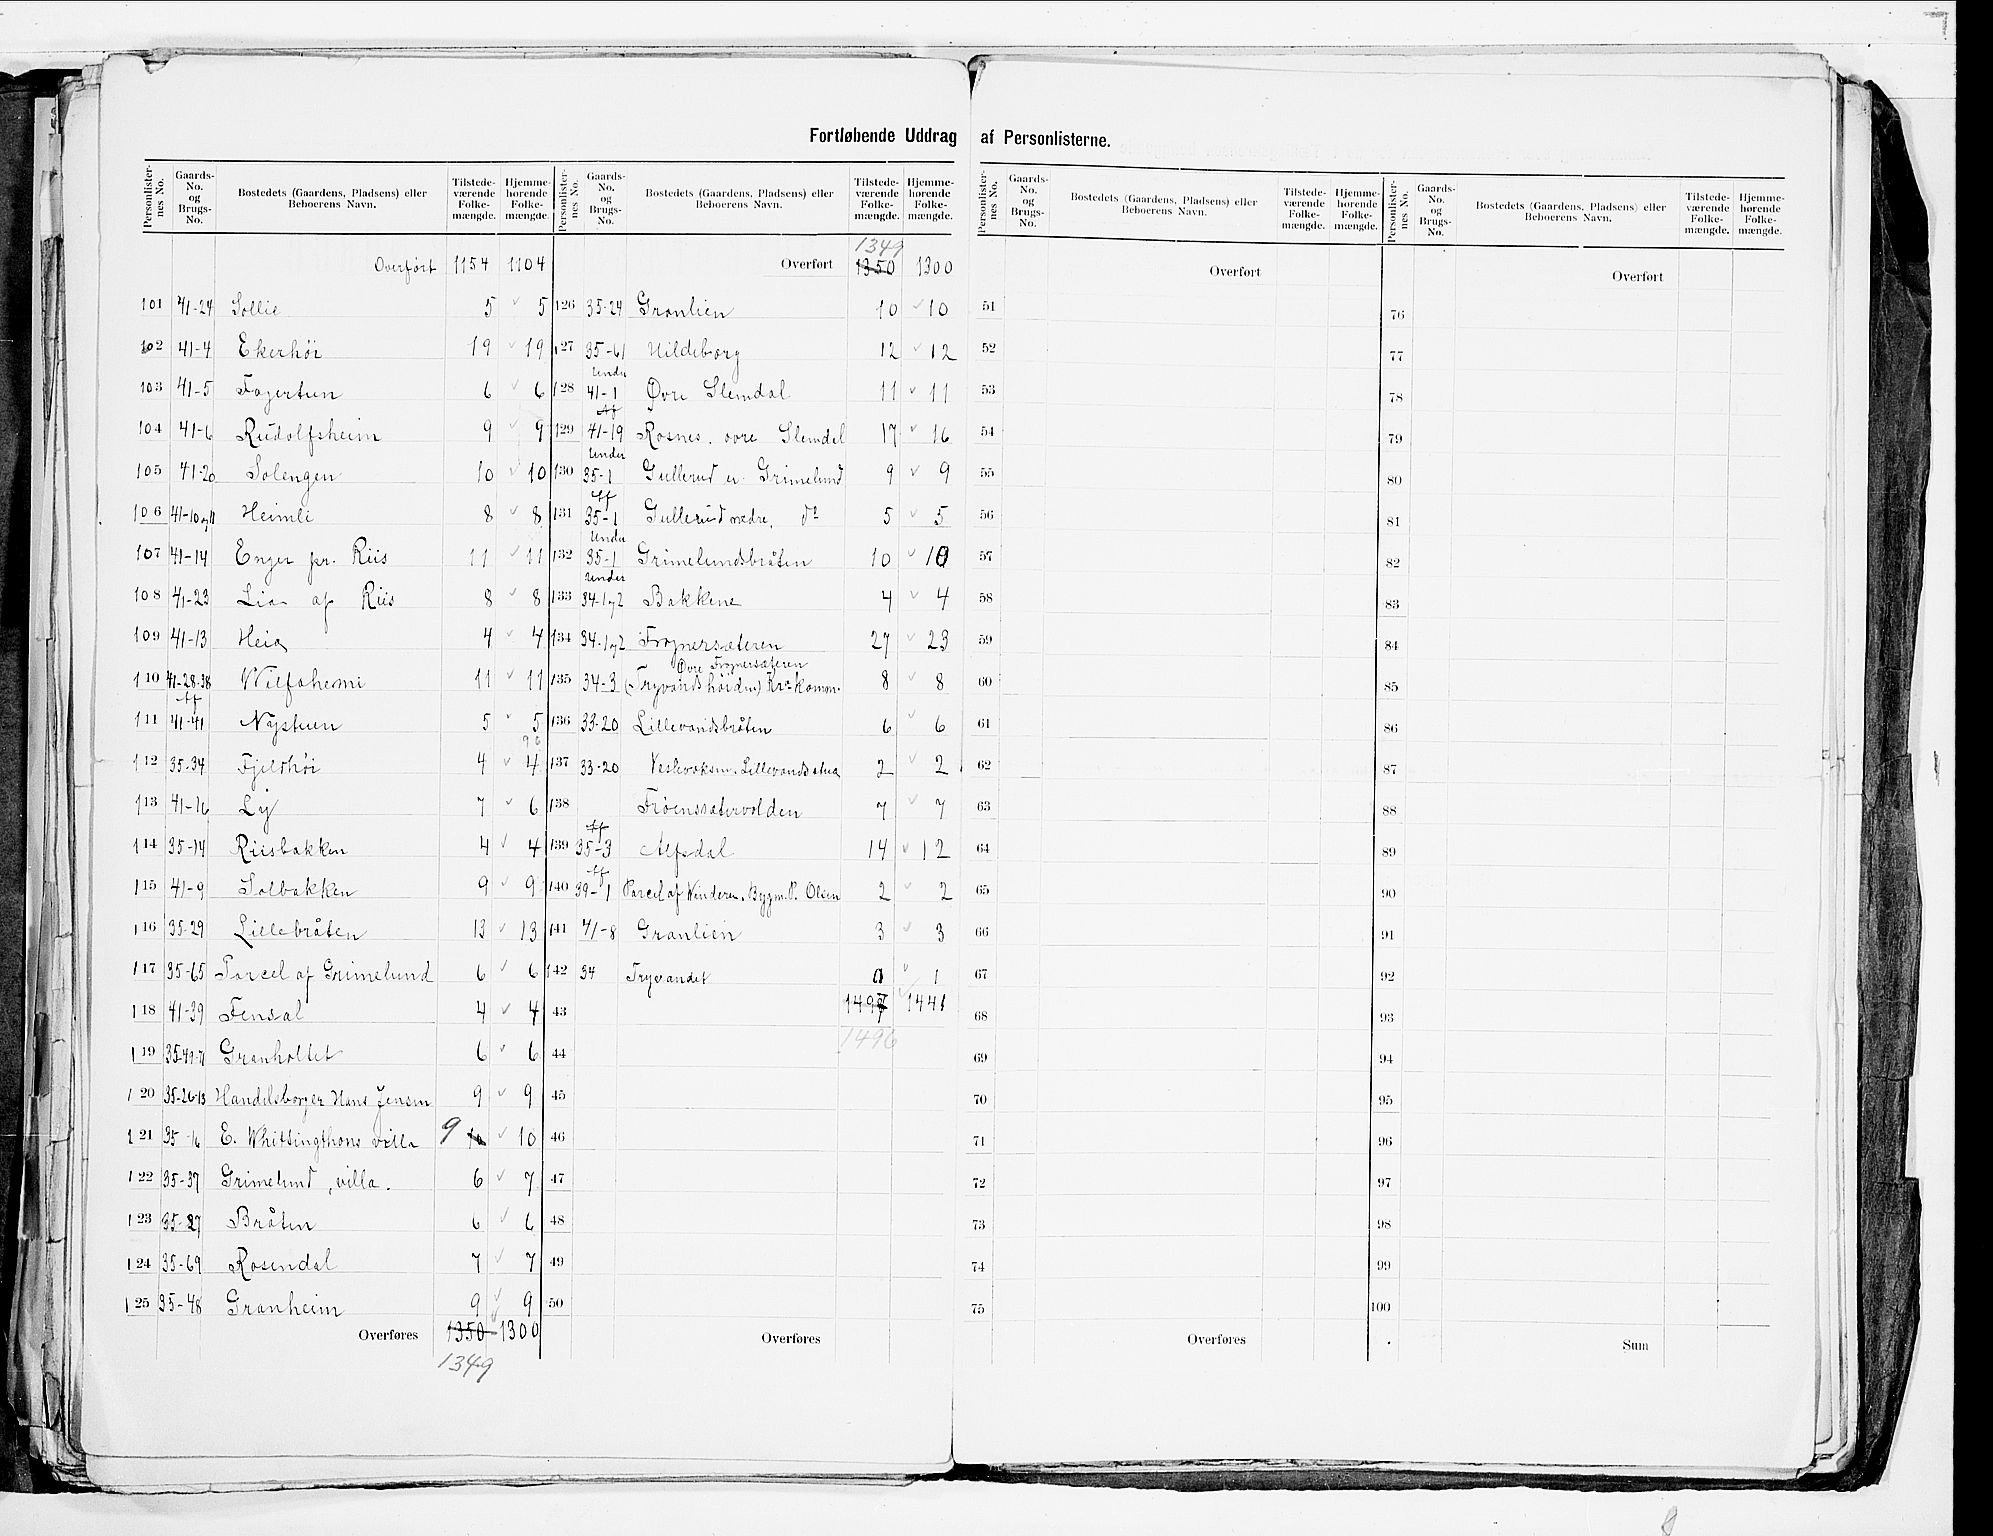 Fortløbende Uddrag af Personlisterne.
Personlister-nes No. | Gaards-No. og Brugs-No. | Bostedets (Gaardens, Pladsens) eller Beboerens Navn. | Tilstede-værende Folke-mængde. | Hjemme-hørende Folke-mængde.
Overført 1154 1104
101 41-24 Sollie 5 ✓ 5
102 41-4 Ekerhöi 19 ✓ 19
103 41-5 Fagertun 6 ✓ 6
104 41-6 Rudolfsheim 9 ✓ 9
105 41-20 Solengen 10 ✓ 10
106 41-10 og 11 Heimli 8 ✓ 8
107 41-14 Enger pr. Riis 11 ✓ 11
108 41-23 Lia af Riis 8 ✓ 8
109 41-13 Heia 4 ✓ 4
110 41-28-38 11 ✓ 11
111 Af 41-41 Nystuen 5 ✓ 5
96
112 35-34 Fjeldhöi 4 ✓ 4
113 41-16 Ly 7 ✓ 6
114 35-14 Riisbakken 4 ✓ 4
115 41-9 Solbakken 9 ✓ 9
116 35-29 Lillebråten 13 ✓ 13
117 35-65 Parcel af Grimelund 6 ✓ 6
118 41-39 Fensal 4 ✓ 4
119 35-49-71 Granholtet 6 ✓ 6
120 35-26-13 Handelsborger Hans Jensen 9 ✓ 9
121 35-16 E. Whittingthons villa 9 10 ✓ 10
122 35-37 Grimelund, villa. 6 ✓ 7
123 35-27 Bråten 6 ✓ 6
124 35-69 Rosendal 7 ✓ 7
125 35-48 Granheim 9 ✓ 9
Overføres 1350 1300
1349
Personlister-nes No. | Gaards-No. og Brugs-No. | Bostedets (Gaardens, Pladsens) eller Beboerens Navn. | Tilstede-værende Folke-mængde. | Hjemme-hørende Folke-mængde.
1349
Overført 1350 1300
126 35-24 Granlien 10 ✓ 10
127 35-61 Hildeborg 12 ✓ 12
128 Under 41-1 Øvre Slemdal 11 ✓ 11
129 Af 41-19 Rosnes. øvre Slemdal 17 ✓ 16
130 Under 35-1 Gullerud u. Grimelund 9 ✓ 9
131 Af 35-1 Gullerud nedre, do 5 ✓ 5
132 Under 35-1 Grimelundsbråten 10 ✓ 10
133 Under 34-1 og 2 Bakkene 4 ✓ 4
134 34-1 og 2 Frognersæteren 27 ✓ 23
Øvre Frognersæteren
135 34-3 (Tryvandshöiden) Kra komm. 8 ✓ 8
136 33-20 Lillevandsbråten 6 ✓ 6
137 33-20 Lillevandsstua 2 ✓ 2
138 Frøenssætervolden 7 ✓ 7
139 Af 35-3 Alfsdal 14 ✓ 12
140 Af 39-1 Parcel af Vinderen. Bygm. P. Olsen 2 ✓ 2
141 41-8 Granlien 3 ✓ 3
142 34 Tryvandet 0 ✓ 1
43 1497 ✓ 1441
1496
44
45
46
47
48
49
50
Overføres
Personlister-nes No. | Gaards-No. og Brugs-No. | Bostedets (Gaardens, Pladsens) eller Beboerens Navn. | Tilstede-værende Folke-mængde. | Hjemme-hørende Folke-mængde.
Overført
51
52
53
54
55
56
57
58
59
60
61
62
63
64
65
66
67
68
69
70
71
72
73
74
75
Overføres
Personlister-nes No. | Gaards-No. og Brugs-No. | Bostedets (Gaardens, Pladsens) eller Beboerens Navn. | Tilstede-værende Folke-mængde. | Hjemme-hørende Folke-mængde.
Overført
76
77
78
79
80
81
82
83
84
85
86
87
88
89
90
91
92
93
94
95
96
97
98
99
100
Sum